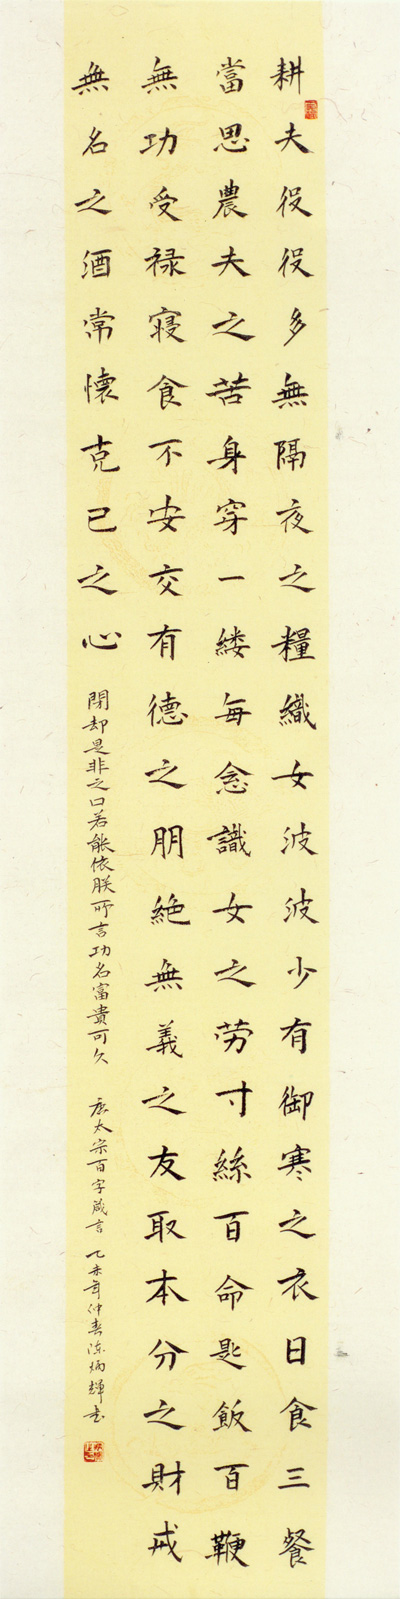 耕夫役役多無隔夜之糧織女波波少有御寒之衣日食三餐
當思農夫之苦身穿一縷每念識女之劳寸絲百命匙飯百鞭
無功受禄寝食不安交有德之朋絶無義之友取本分之財戒
無名之酒常懷克己之心 閉却是非之口若能依朕所言功名富貴可久 唐太宗百字箴言 乙未年仲春陈炳輝书